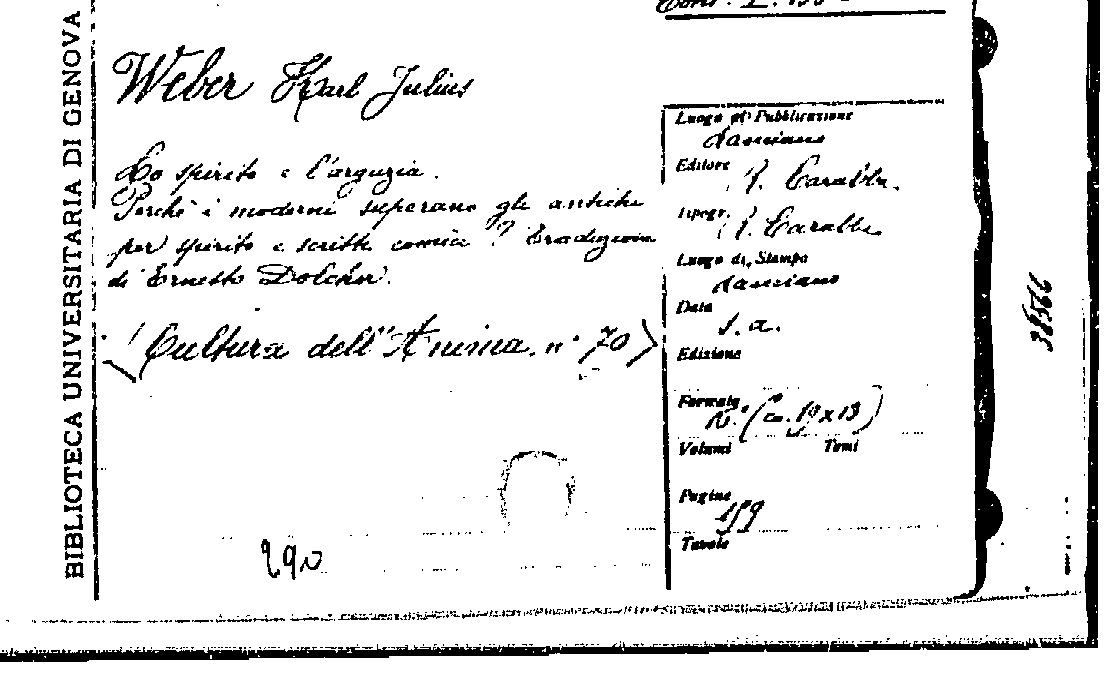 BIBLIOTECA UNIVERSITARIA DI GENOVA
Weber Karl Julius
Lo spirito e l'arguzia.
Perchè i moderni superano gli antichi
per spirito e scritti comici? Traduzione
di Ernesto Dolcher.
(Cultura dell'Anima. n° 70)
290
Luogo di Pubblicazione
Lanciano
Editore
R. Carabba.
Tipogr.
R. Carabba
Luogo di Stampa
Lanciano
Data
s.a.
Edizione
Formato
16.° (cm. 19x13)
Volumi Tomi
Pagine
159
Tavole
38566